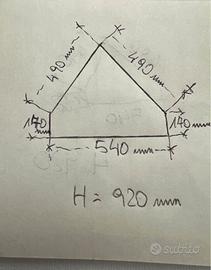 490 mm
490 mm
140 mm
140
540 mm
H = 920 mm
subito